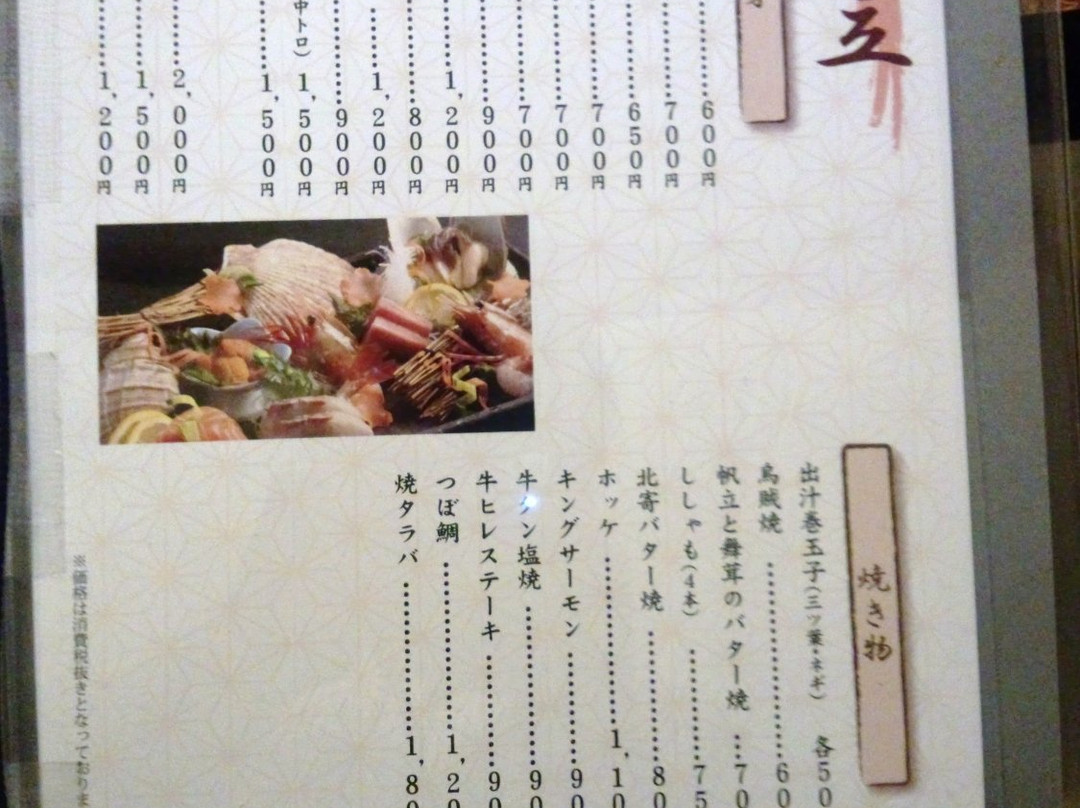 立
600円
700円
650円
700円
700円
700円
900円
1,200円
800円
1,200円
900円
中トロ）1,500円
1,500円
2,000円
1,500円
1,200円
焼き物
出汁巻玉子（三ッ葉・ネギ） 各50
烏賊焼 60
帆立と舞茸のバター焼 70
ししゃも（4本） 75
北寄バター焼 80
ホッケ 1,10
キングサーモン 90
牛タン塩焼 90
牛ヒレステーキ 90
つぼ鯛 1,20
焼タラバ 1,80
※価格は消費税抜きとなっておりま